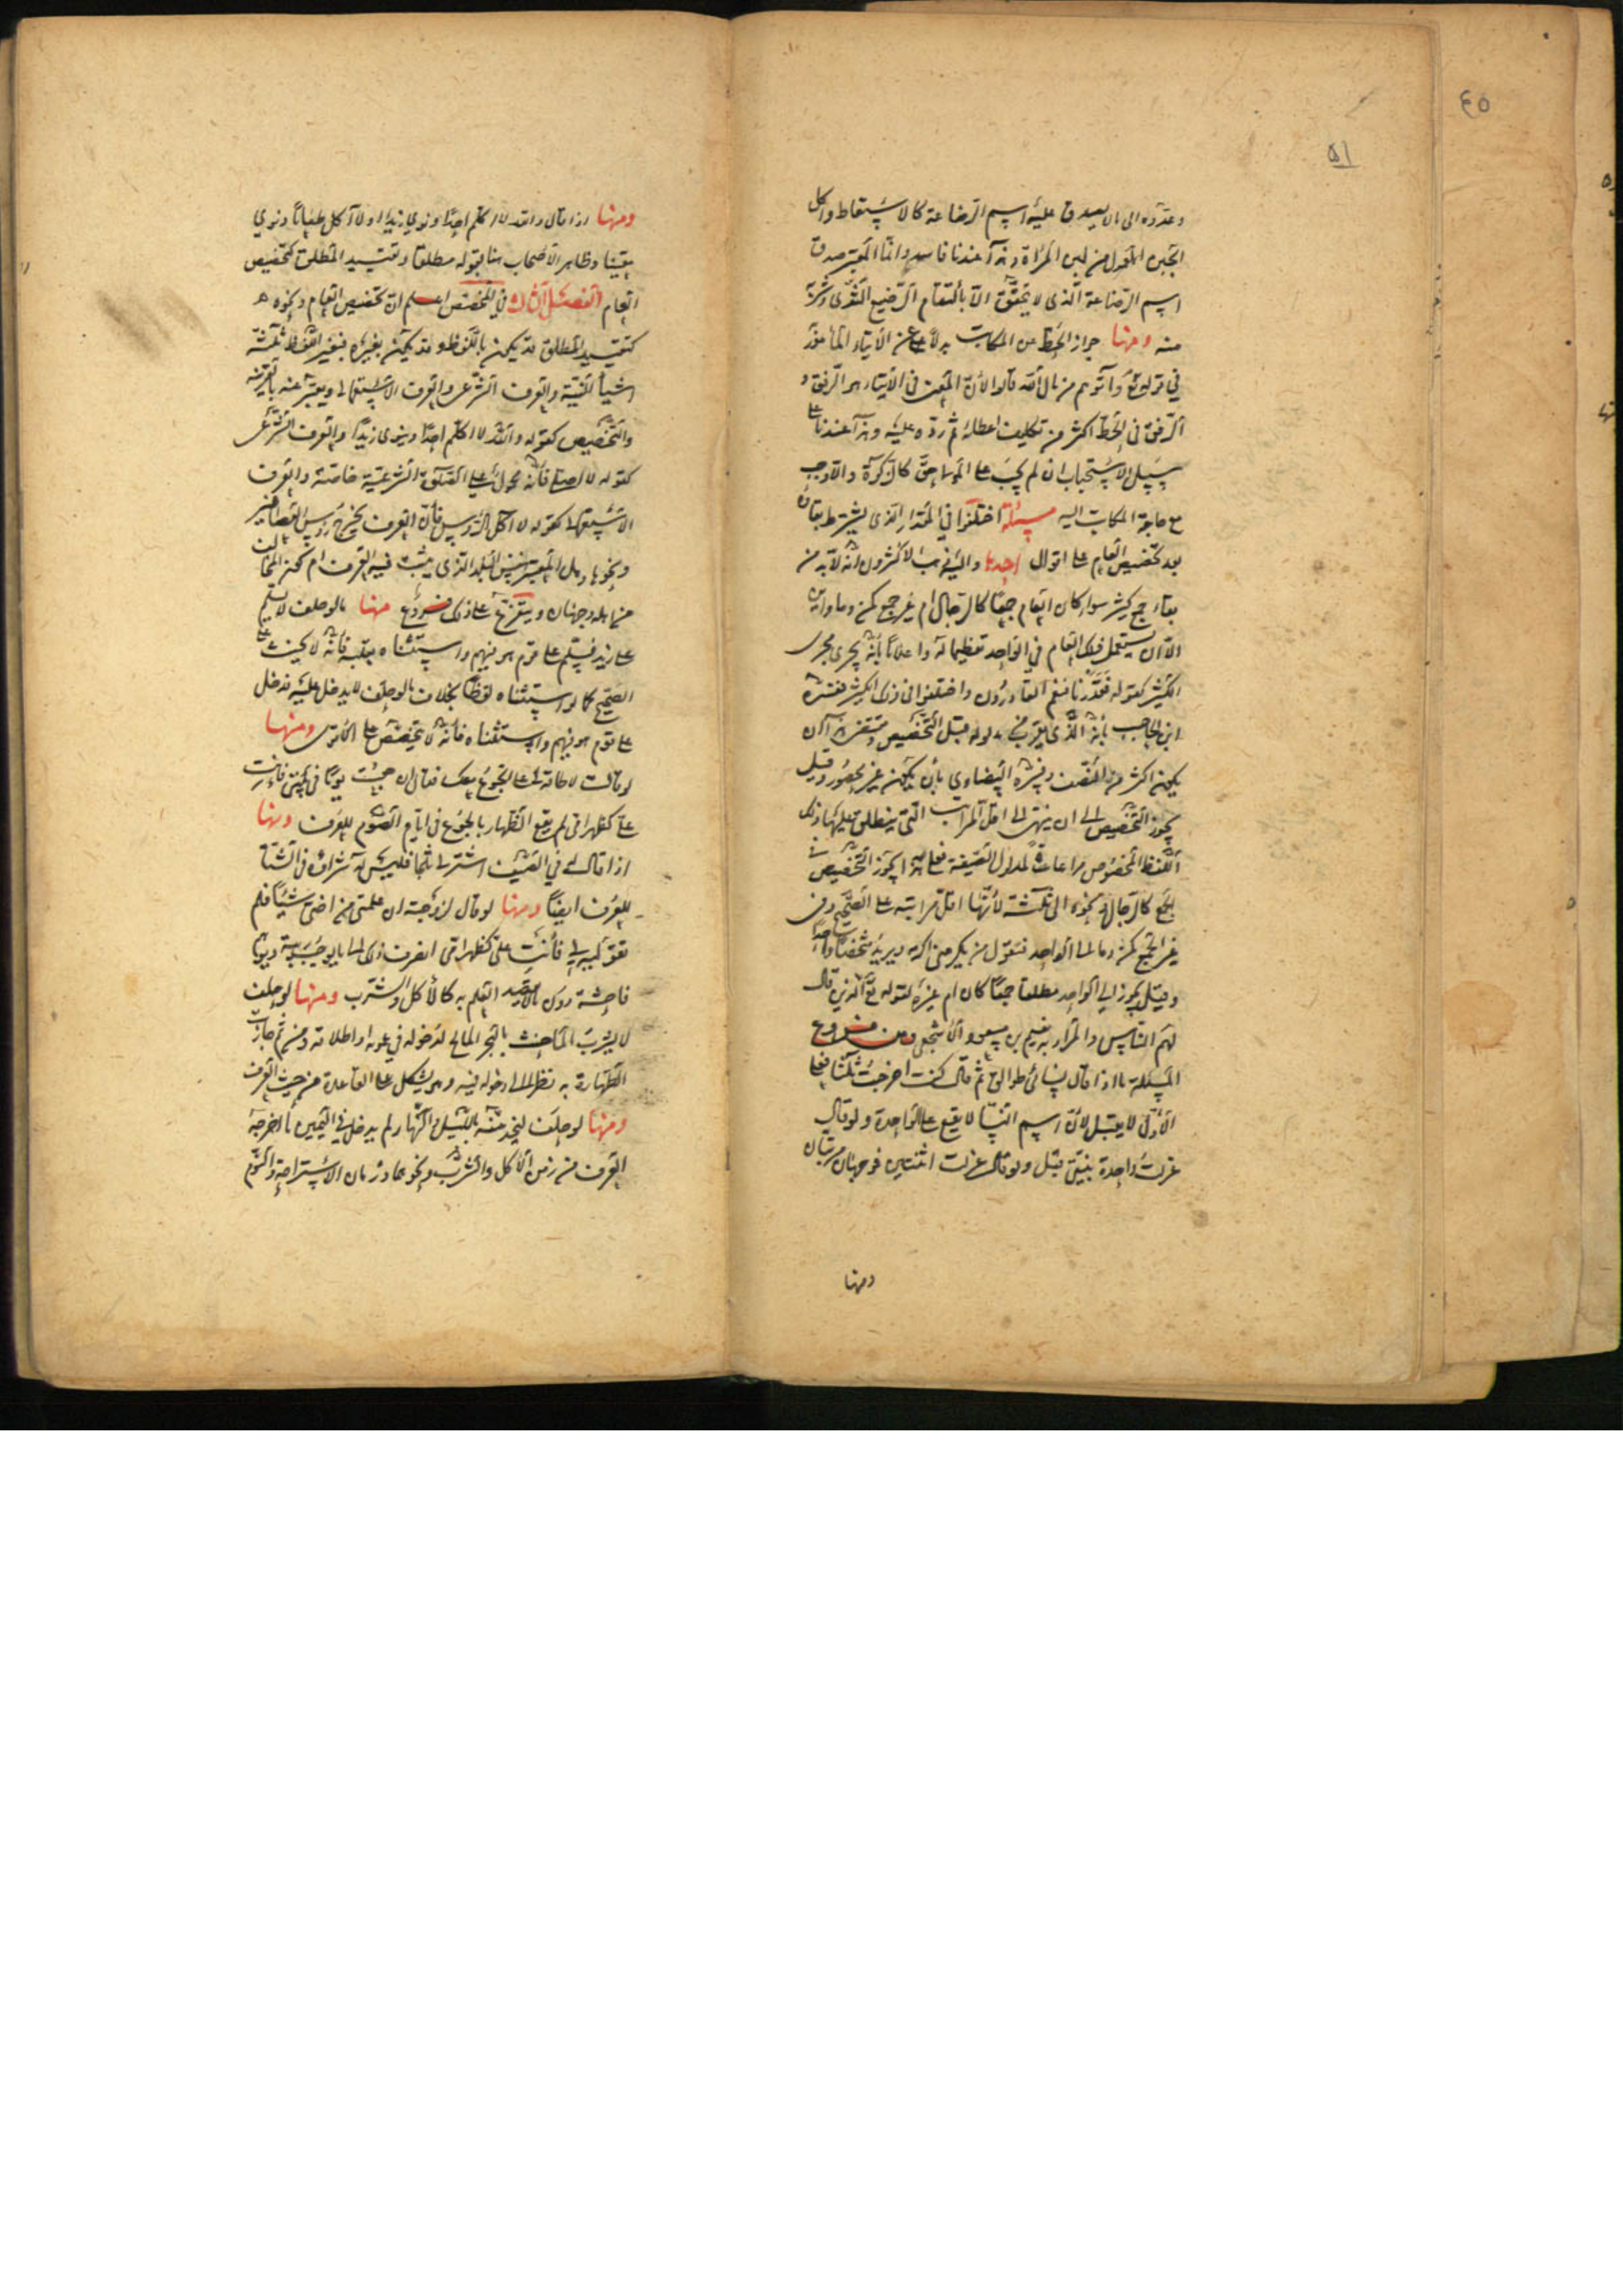 ٤٥
٥١
وعدّوه الى ما لا يصدق عليه اسم الرضاعة كالاستعاط واكل
الجبن المعمول من لبن المرأة وهذا عندنا فاسد وانما المعتبر صدق
اسم الرضاعة الذي لا يتحقق الا بالتقام الرضيع الثدى وشربه
منه ومنها جواز الحط عن المكاتب بدلا عن الايتاء المأمور
في قوله تع وآتوهم من مال الله قالوا لأن المقصد في الايتاء هو الرفق و
الرفق في الحط اكثر من تكليف اعطائه ثم رده عليه وهذا عندنا على
سبيل الاستحباب ان لم يجب على المولى حق كالزكوة والا وجب
مع حاجة المكاتب اليه مسئلة اختلفوا في المقدار الذي يشترط بقاؤه
بعد تخصيص العام على اقوال احدها واليه ذهب الاكثرون انه لا بد من
بقاء جمع كثير سواء كان العام جمعا كالرجال ام غير جمع كمن وما واين
الا ان يستعمل ذلك العام في الواحد تعظيما له واعلاما بأنه يجرى مجرى
الكثير كقوله فقدرنا فنعم القادرون واختلفوا في ذلك الكثير ففسره
ابن الحاجب بأنه الذي يقرب من مدلوله قبل التخصيص ومقتضى هذا ان
يكون اكثر من النصف وفسره البيضاوي بأن يكون غير محصور وقيل
يجوز التخصيص الى ان ينتهى الى اقل المراتب التي ينطلق عليها ذلك
اللفظ المخصوص مراعاة لمدلول الصيغة فعلى هذا يجوز التخصيص في
الجمع كالرجال ونحوه الى ثلاثة لأنها اقل مراتبه على الصحيح وفي
غير الجمع كمن وما الى الواحد فتقول من يكرمني اكرمه ويريد شخصا واحدا
وقيل يجوز الى الواحد مطلقا جمعا كان ام غيره لقوله تع الذين قال
لهم الناس والمراد به نعيم بن مسعود الاشجعى ومن فروع
المسئلة ما اذا قال نسائى طوالق ثم قال كنت اخرجت ثلثا فعلى
الأول لا يقبل لأن اسم النسا لا يقع على الواحدة ولو قال
عزلت واحدة بنيتى قبل ولو قال عزلت اثنتين فوجهان مرتبان
ومنها
ومنها اذا قال والله لا اكلم احدا ونوى زيدا او لا آكل طعاما ونوى
معينا وظاهر الأصحاب هنا قبوله مطلقا وتقييد المطلق كتخصيص
العام الفصل الثالث في المخصص اعلم ان تخصيص العام ونحوه
كتقييد المطلق قد يكون باللفظ وقد يكون بغيره فبغير اللفظ ثلثة
اشياء النية والعرف الشرعى والعرف الاستعمالى ويعبر عنه بالقرينة
والتخصيص كقوله والله لا اكلم احدا وينوى زيدا والعرف الشرعى
كقوله لا اصلي فأنه محمول على الصلوة الشرعية خاصة والعرف
الاستعمالى كقوله لا آكل الرؤس فأن العرف يخرج رؤس العصافير
ونحوها وهل المعتبر نفس البلد الذي يثبت فيه العرف ام كون الحالف
من اهله وجهان ويتفرع على ذلك فروع منها ما لو حلف لا يسلم
على زيد فسلم على قوم هو فيهم واستثناه بقلبه فأنه لا يحنث على
الصحيح كما لو استثناه لفظا بخلاف ما لو حلف لا يدخل عليه فدخل
على قوم هو فيهم واستثناه فأنه لا يتخصص على الاقوى ومنها
لو قالت لا طاقة لى على الجوع معك فقال ان جعت يوما في بيتى فأنت
على كظهر امى لم يقع الظهار بالجوع في ايام الصوم للعرف ومنها
اذا قال له في الصيف اشتر لي ثلجا فليس له شراؤه في الشتا
للعرف ايضا ومنها لو قال لزوجته ان علمتى من اختى شيئا فلم
تقوليه لي فأنت على كظهر امى انصرف ذلك الى ما يوجب ريبة ويوهم
فاحشة دون ما لا يقصد العلم به كالأكل والشرب ومنها لو حلف
لا يشرب الما حنث بالبحر المالح لدخوله في عموم اطلاقه ومن ثم جازت
الطهارة به نظرا الى دخوله فيه وهو يشكل على القاعدة من حيث العرف
ومنها لو حلف ليخدمنه بالليل والنهار لم يدخل في اليمين ما اخرجه
العرف من زمن الأكل والشرب ونحوهما وزمان الاستراحة والنوم